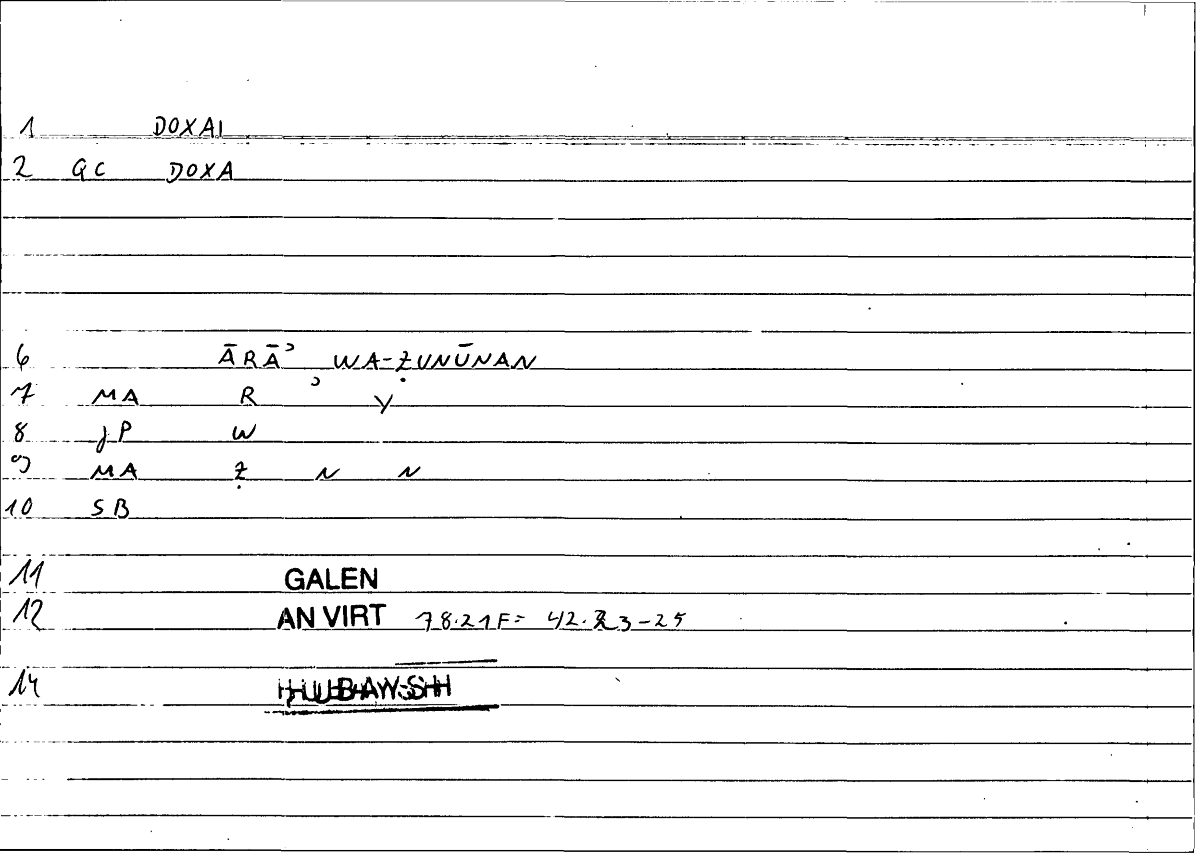 1 DOXAI
2 GC DOXA
6 ĀRĀʾ, WA-ẒUNŪNAN
7 MA R ʾ Y
8 JP W
9 MA Ẓ N N
10 SB
11 GALEN
12 AN VIRT 78.21F= 42.23-25
14 HUBAYSH